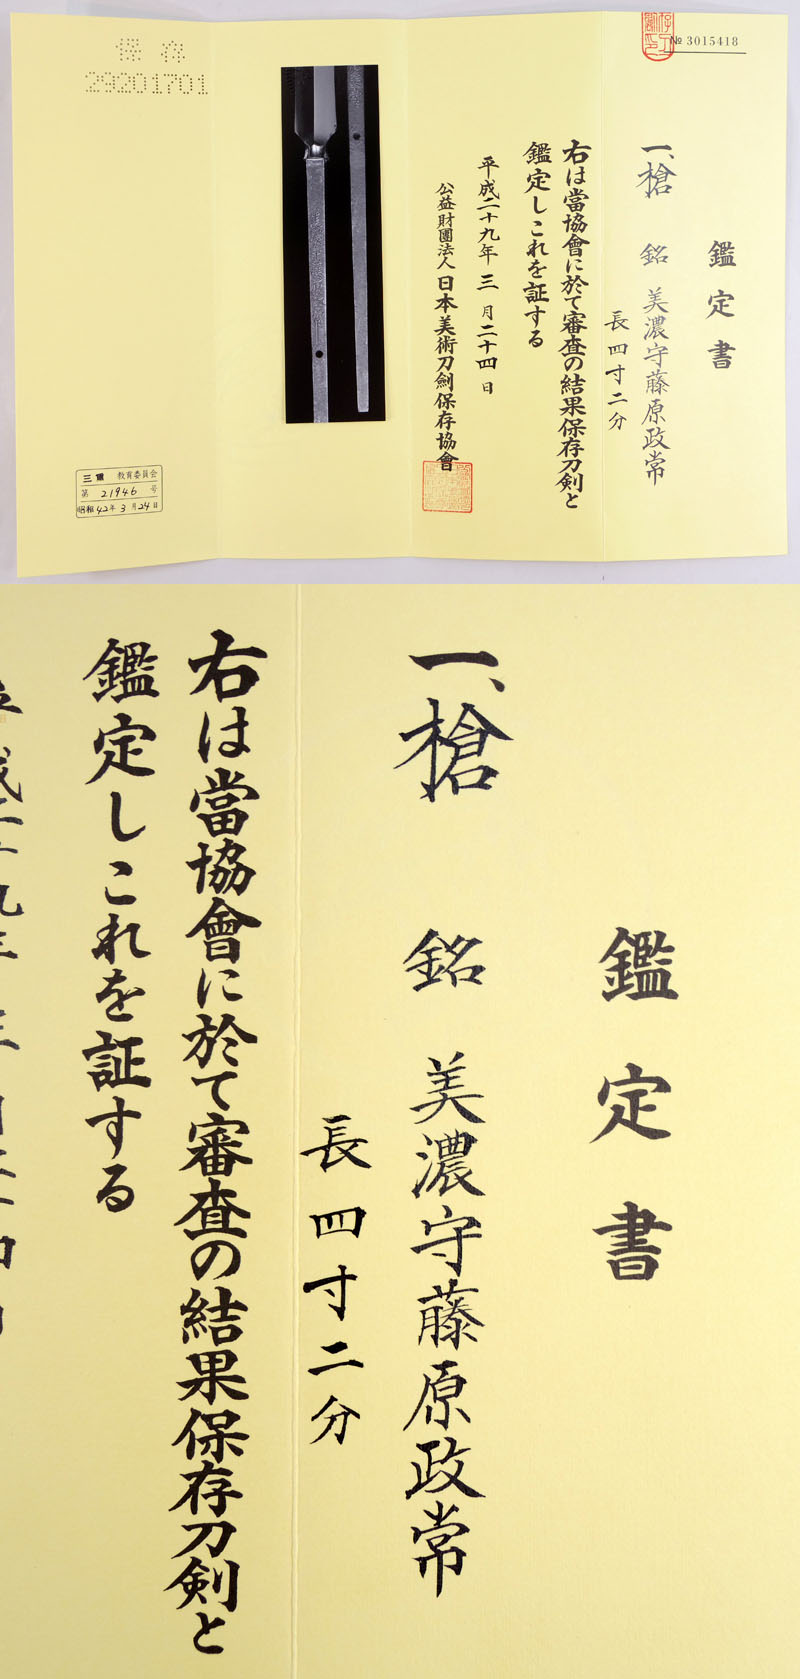 № 3015418
鑑定書
一、槍 銘 美濃守藤原政常
長四寸二分
右は當協會に於て審査の結果保存刀剣と
鑑定しこれを証する
平成二十九年三月二十四日
公益財團法人日本美術刀劍保存協會
保存
29201701
三重 教育委員会
第 21946 号
昭和42年3月24日
鑑定書
一、槍 銘 美濃守藤原政常
長四寸二分
右は當協會に於て審査の結果保存刀剣と
鑑定しこれを証する